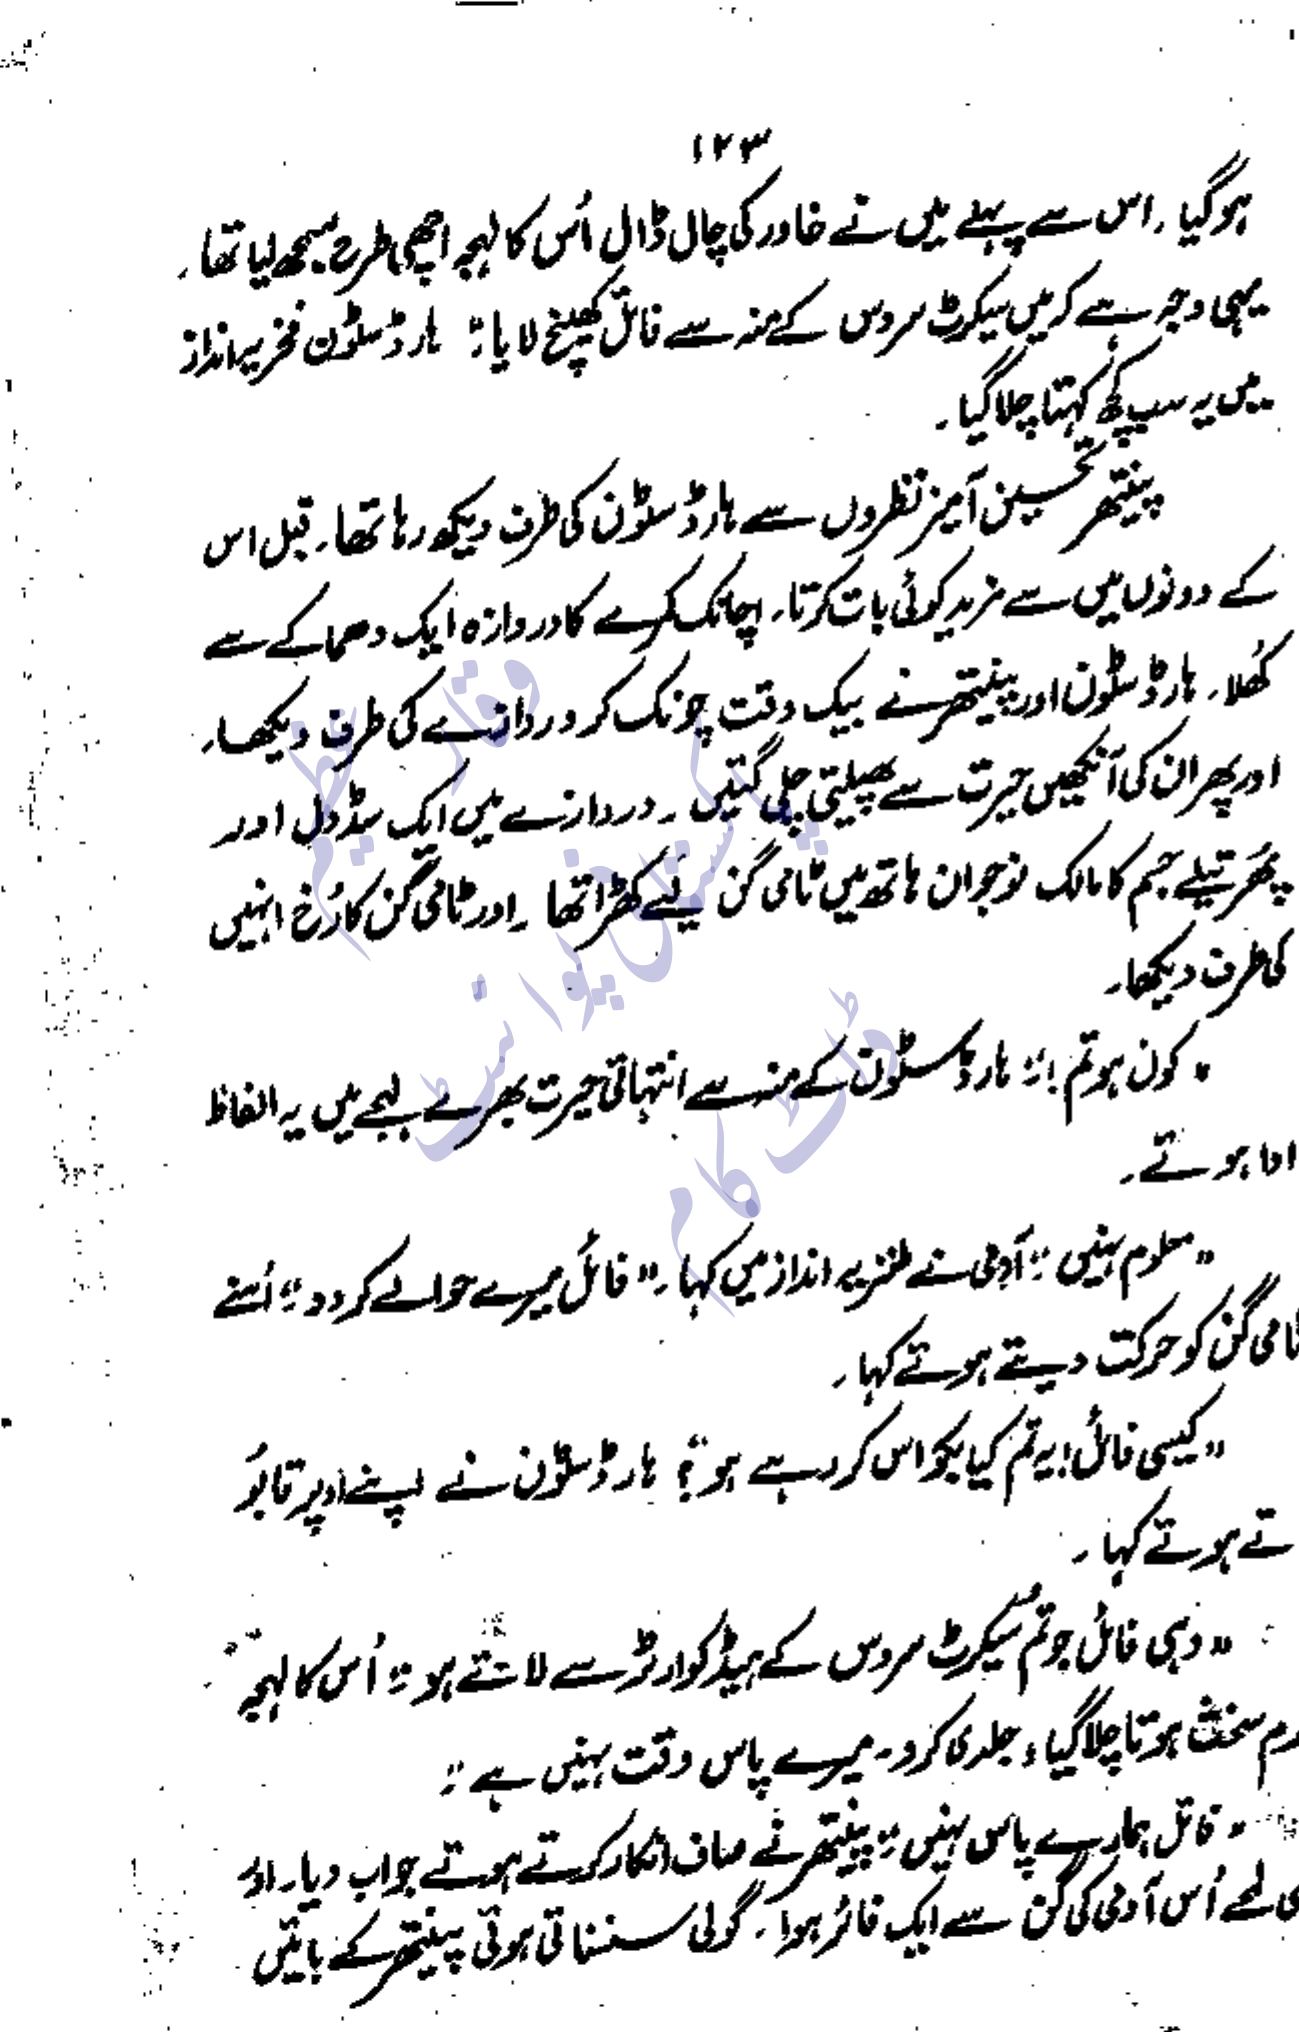 ۱۲۳
ہوگیا۔ اس سے پہلے میں نے خاور کی چال ڈال اُس کا لہجہ اچھی طرح سمجھ لیا تھا۔
یہی وجہ ہے کہ میں سیکرٹ سروس کے منہ سے فائل کھینچ لایا"۔ ہارڈ سٹون فخریہ انداز
میں یہ سب کچھ کہتا چلا گیا۔
پینتھر تحسین آمیز نظروں سے ہارڈ سٹون کی طرف دیکھ رہا تھا۔ قبل اس
کے دونوں میں سے مزید کوئی بات کرتا۔ اچانک کمرے کا دروازہ ایک دھماکے سے
کھُلا۔ ہارڈ سٹون اور پینتھر نے بیک وقت چونک کر دروازے کی طرف دیکھا۔
اور پھر ان کی آنکھیں حیرت سے پھیلتی چلی گئیں۔ دروازے میں ایک سڈول اور
پھُرتیلے جسم کا مالک نوجوان ہاتھ میں ٹامی گن لیے کھڑا تھا۔ اور ٹامی گن کا رُخ انہیں
کی طرف دیکھا۔
"کون ہو تم!"۔ ہارڈ سٹون کے منہ سے انتہائی حیرت بھرے لہجے میں یہ الفاظ
ادا ہوئے۔
"معلوم نہیں"۔ آدمی نے طنزیہ انداز میں کہا۔ "فائل میرے حوالے کر دو"۔ اُسنے
ٹامی گن کو حرکت دیتے ہوئے کہا۔
"کیسی فائل! یہ تم کیا بکواس کر رہے ہو"؟ ہارڈ سٹون نے اپنے اوپر قابُو
تے ہوئے کہا۔
"وہی فائل جو تم سیکرٹ سروس کے ہیڈ کوارٹر سے لائے ہو"۔ اُس کا لہجہ
دم سخت ہوتا چلا گیا، جلدی کرو۔ میرے پاس وقت نہیں ہے"۔
"فائل ہمارے پاس نہیں"۔ پینتھر نے صاف انکار کرتے ہوئے جواب دیا۔ اور
ی لمحے اُس آدمی کی گن سے ایک فائر ہوا۔ گولی سنسناتی ہوئی پینتھر کے بائیں
وقار عظیم
پاکستانی پوائنٹ
ڈاٹ کام